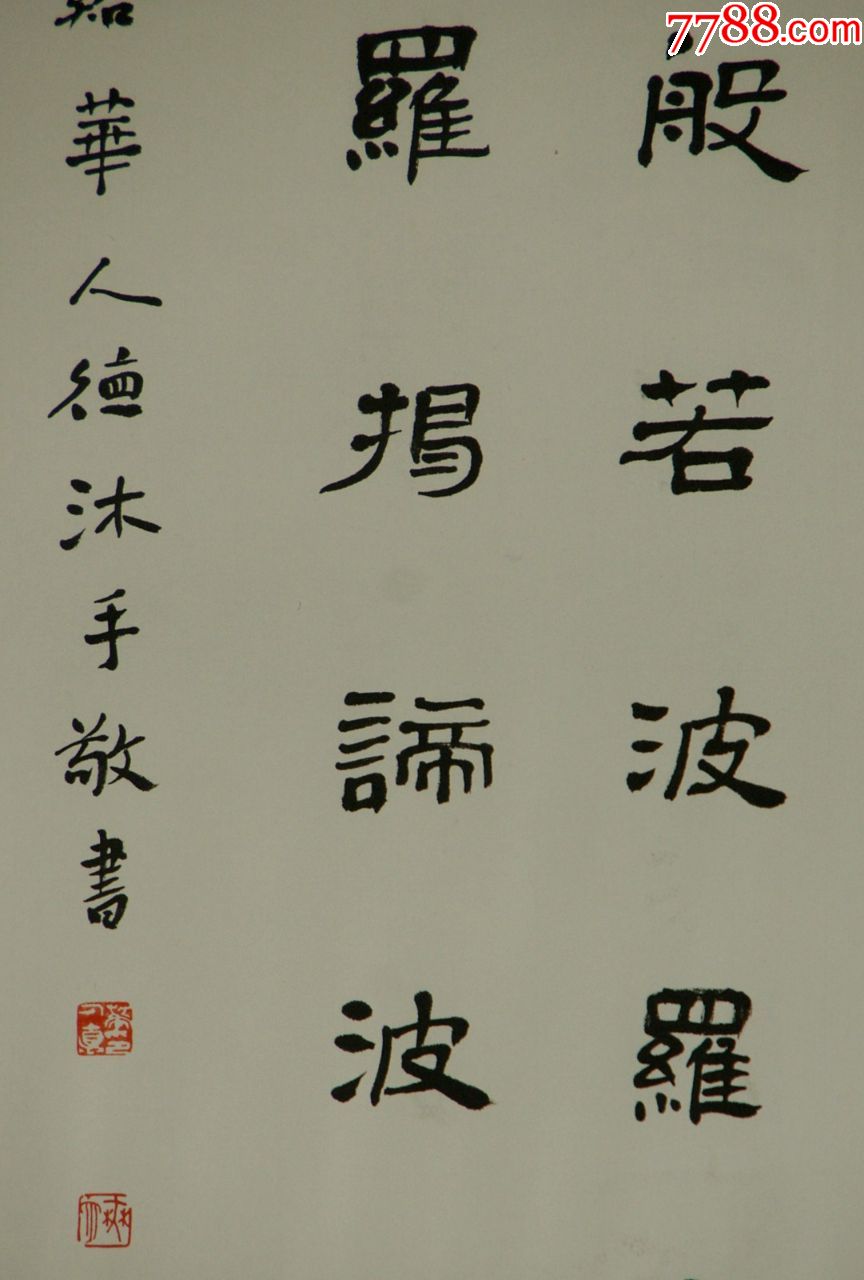 7788.com
般若波羅
羅揭諦波
華人德沐手敬書